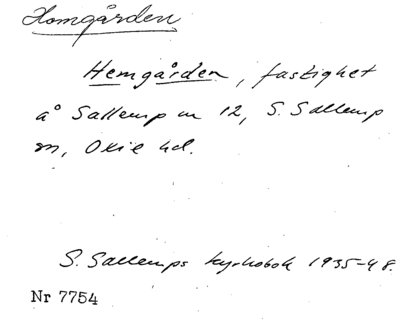 Homgården
Hemgården, fastighet
å Sallerup nr 12, S. Sallerup
sn, Oxie hd.
S. Sallerups kyrkobok 1935-48.
Nr 7754